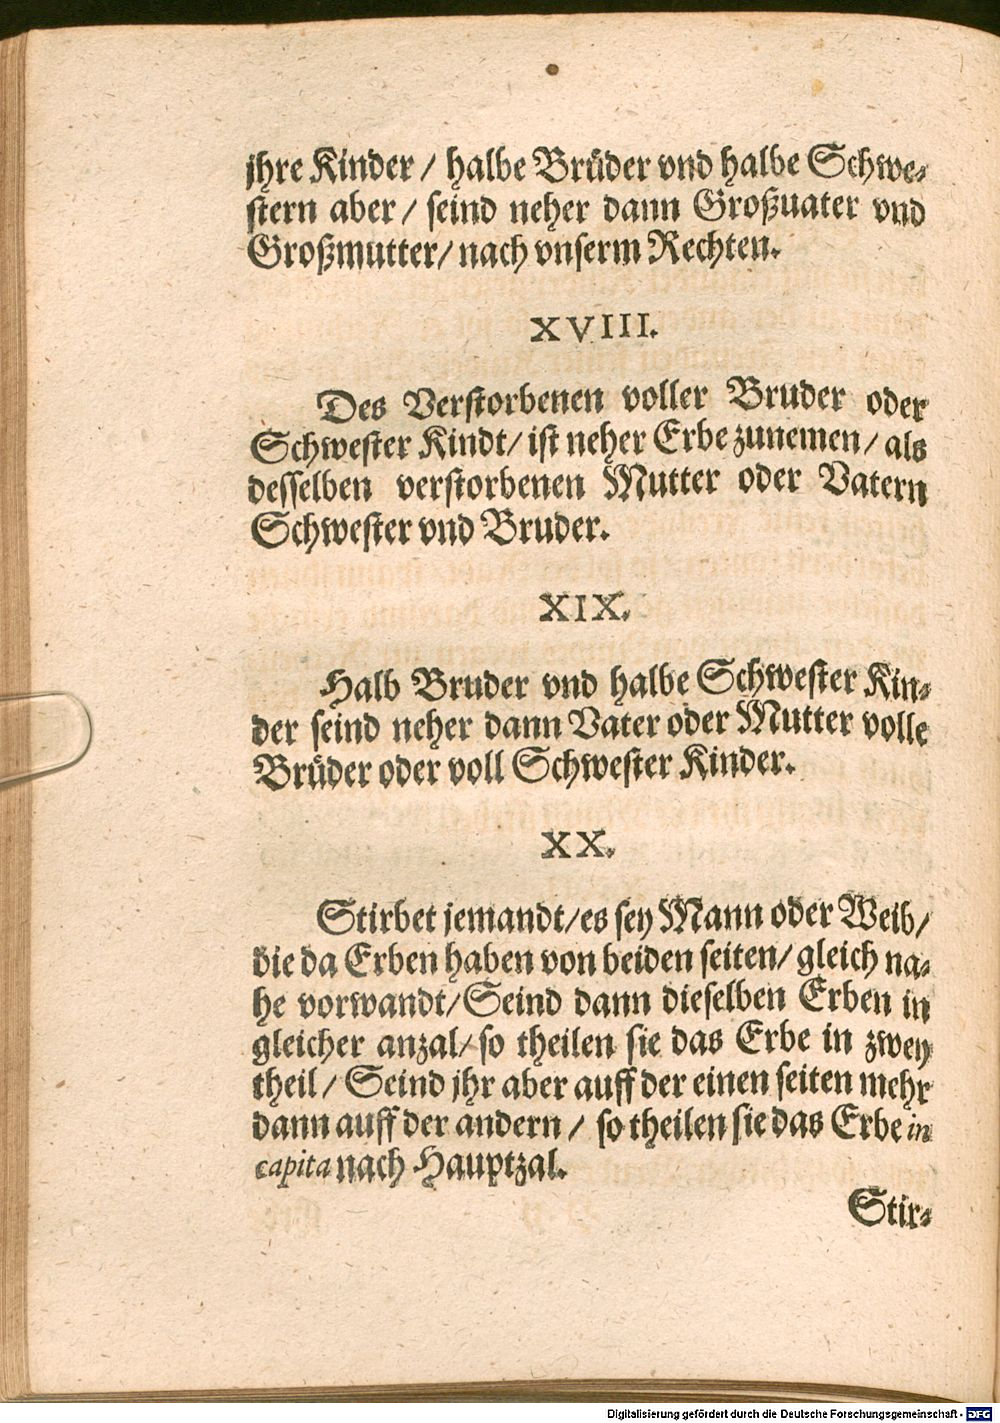 jhre Kinder / halbe Brüder vnd halbe Schwe-
stern aber / seind neher dann Großuater vnd
Großmutter / nach vnserm Rechten.
XVIII.
Des Verstorbenen voller Bruder oder
Schwester Kindt / ist neher Erbe zunemen / als
desselben verstorbenen Mutter oder Vatern
Schwester vnd Bruder.
XIX.
Halb Bruder vnd halbe Schwester Kin-
der seind neher dann Vater oder Mutter volle
Brüder oder voll Schwester Kinder.
XX.
Stirbet jemandt / es sey Mann oder Weib /
die da Erben haben von beiden seiten / gleich na-
he vorwandt / Seind dann dieselben Erben in
gleicher anzal / so theilen sie das Erbe in zwey
theil / Seind jhr aber auff der einen seiten mehr
dann auff der andern / so theilen sie das Erbe in
capita nach Hauptzal.
Stir-
Digitalisierung gefördert durch die Deutsche Forschungsgemeinschaft - DFG